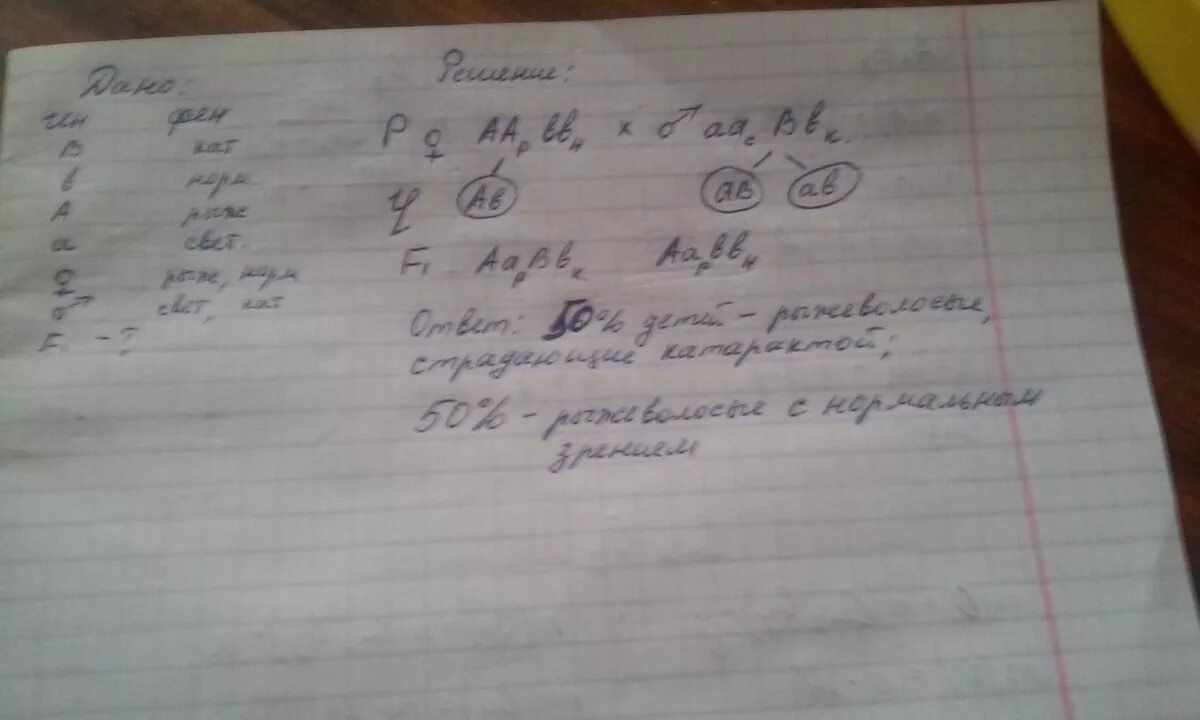 Дано:
ген фен
В кат
в норм.
А рыже
а свет.
♀ рыже, норм
♂ свет, кат
F₁ - ?
Решение:
P ♀ ААр ввн х ♂ аас Ввк.
Ав аВ ав
F₁ АарВвк Аарввн
Ответ: 50% детей - рыжеволосые,
страдающие катарактой;
50% - рыжеволосые с нормальным
зрением